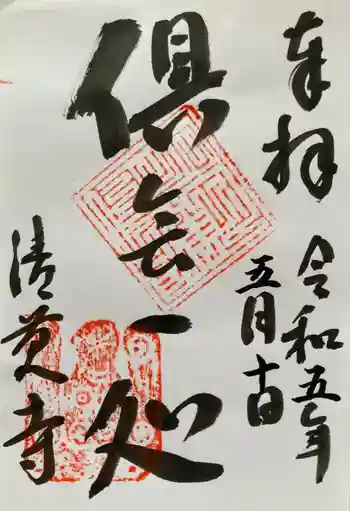 奉拝
令和五年
五月十日
倶会一処
清覚寺